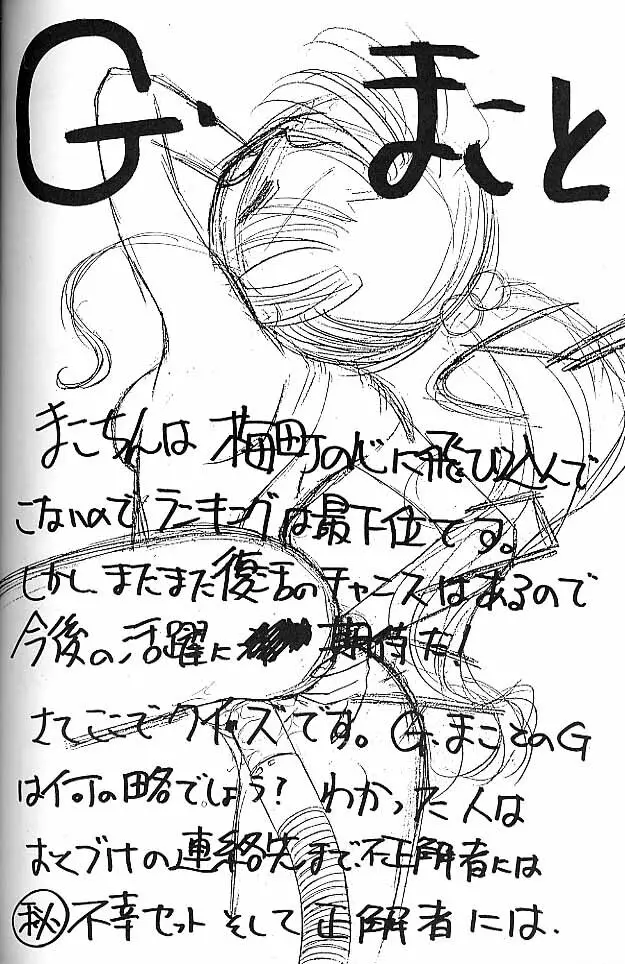 G.まこと
まこちんは 梅町の心に飛び込んで
こないのでランキングは最下位です。
しかし、まだまだ復活のチャンスはあるので
今後の活躍に 期待だ!
さてここでクイズです。G.まことのG
は何の略でしょう? わかった人は
おくづけの連絡先まで、不正解者には
㊙不幸セット そして正解者には.